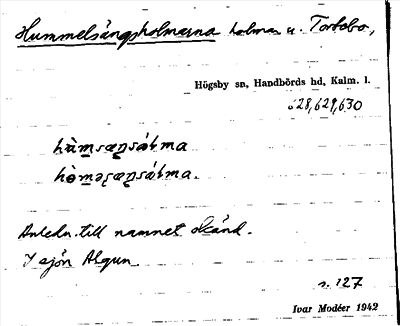 Hummelsängsholmarna holmar u. Tortebo,
Högsby sn, Handbörds hd, Kalm. l.
628,629,630
Anledn. till namnet okänd.
I sjön Algun
s. 127
Ivar Modéer 1942